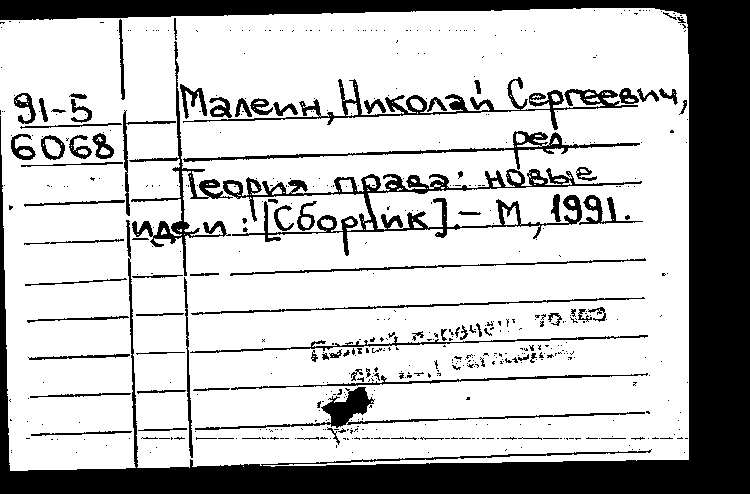 91-5
6068
Малеин, Николай Сергеевич,
ред.
Теория права: новые
идеи : [Сборник]. – М., 1991.